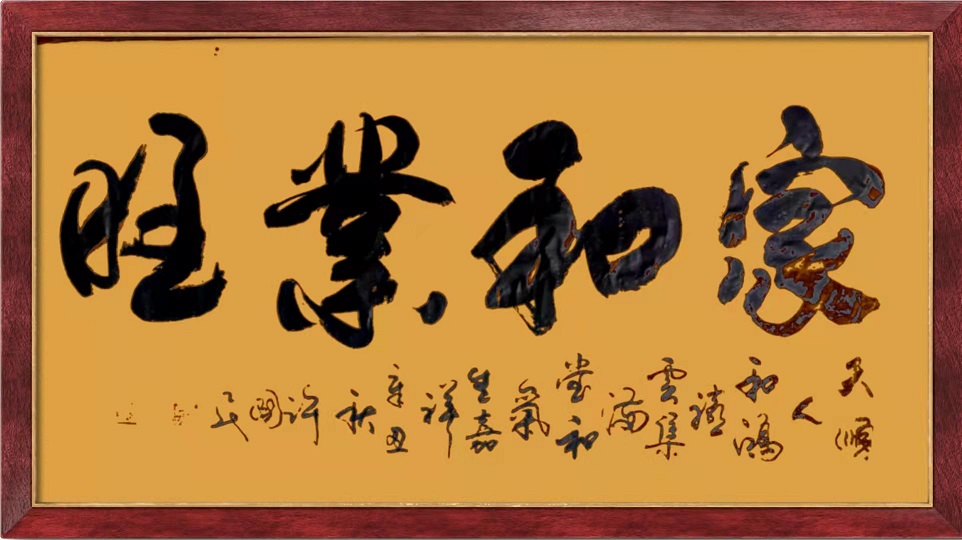 家和業旺
天順人和鴻禧雲集滿堂和氣生嘉祥辛丑秋許國民